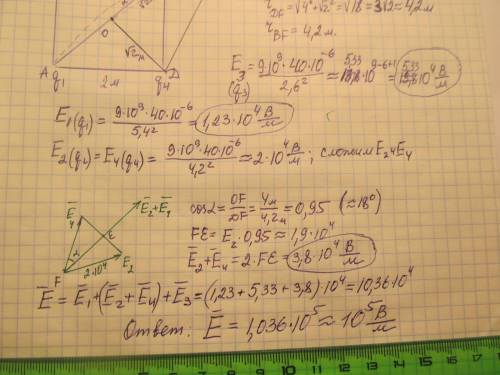 r_DF = √4²+√2² = √18 = 3√2 ≈ 4,2м
r_BF = 4,2м.
O √2м
A q₁ 2м q₄ D
E₃(q₃) = 9·10⁹·40·10⁻⁶ / 2,6² ≈ 5,33·10⁹⁻⁶⁺¹ ≈ 5,33·10⁴ В/м
E₁(q₁) = 9·10⁹·40·10⁻⁶ / 5,4² = 1,23·10⁴ В/м
E₂(q₂) = E₄(q₄) = 9·10⁹·40·10⁻⁶ / 4,2² ≈ 2·10⁴ В/м ; сложим E₂ и E₄
E̅₄ E̅₂+E̅₄
cosα = OF/DF = 4м/4,2м = 0,95 (≈18°)
F α E E̅₂ 2·10⁴
FE = E₂·0,95 ≈ 1,9·10⁴
E̅₂+E̅₄ = 2·FE = 3,8·10⁴ В/м
E̅ = E̅₁+(E̅₂+E̅₄)+E̅₃ = (1,23+5,33+3,8)10⁴ = 10,36·10⁴
Ответ: E̅ = 1,036·10⁵ ≈ 10⁵ В/м
6 7 8 9 10 11 12 13 14 15 16